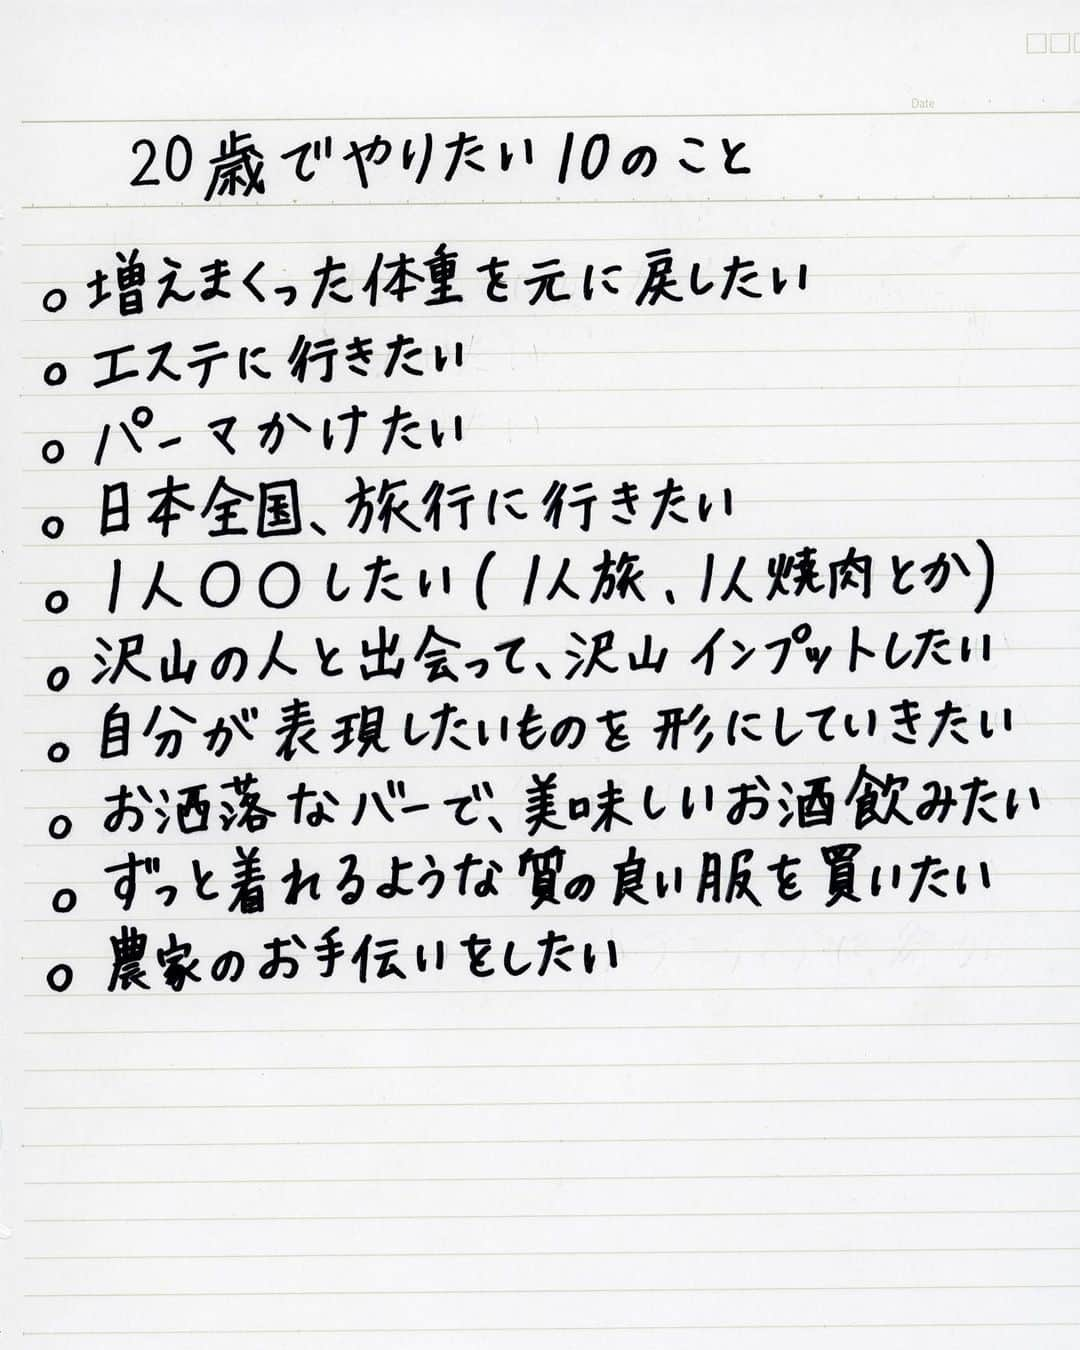 Date
20歳でやりたい10のこと
○増えまくった体重を元に戻したい
○エステに行きたい
○パーマかけたい
○日本全国、旅行に行きたい
○1人〇〇したい(1人旅、1人焼肉とか)
○沢山の人と出会って、沢山インプットしたい
○自分が表現したいものを形にしていきたい
○お洒落なバーで、美味しいお酒飲みたい
○ずっと着れるような質の良い服を買いたい
○農家のお手伝いをしたい